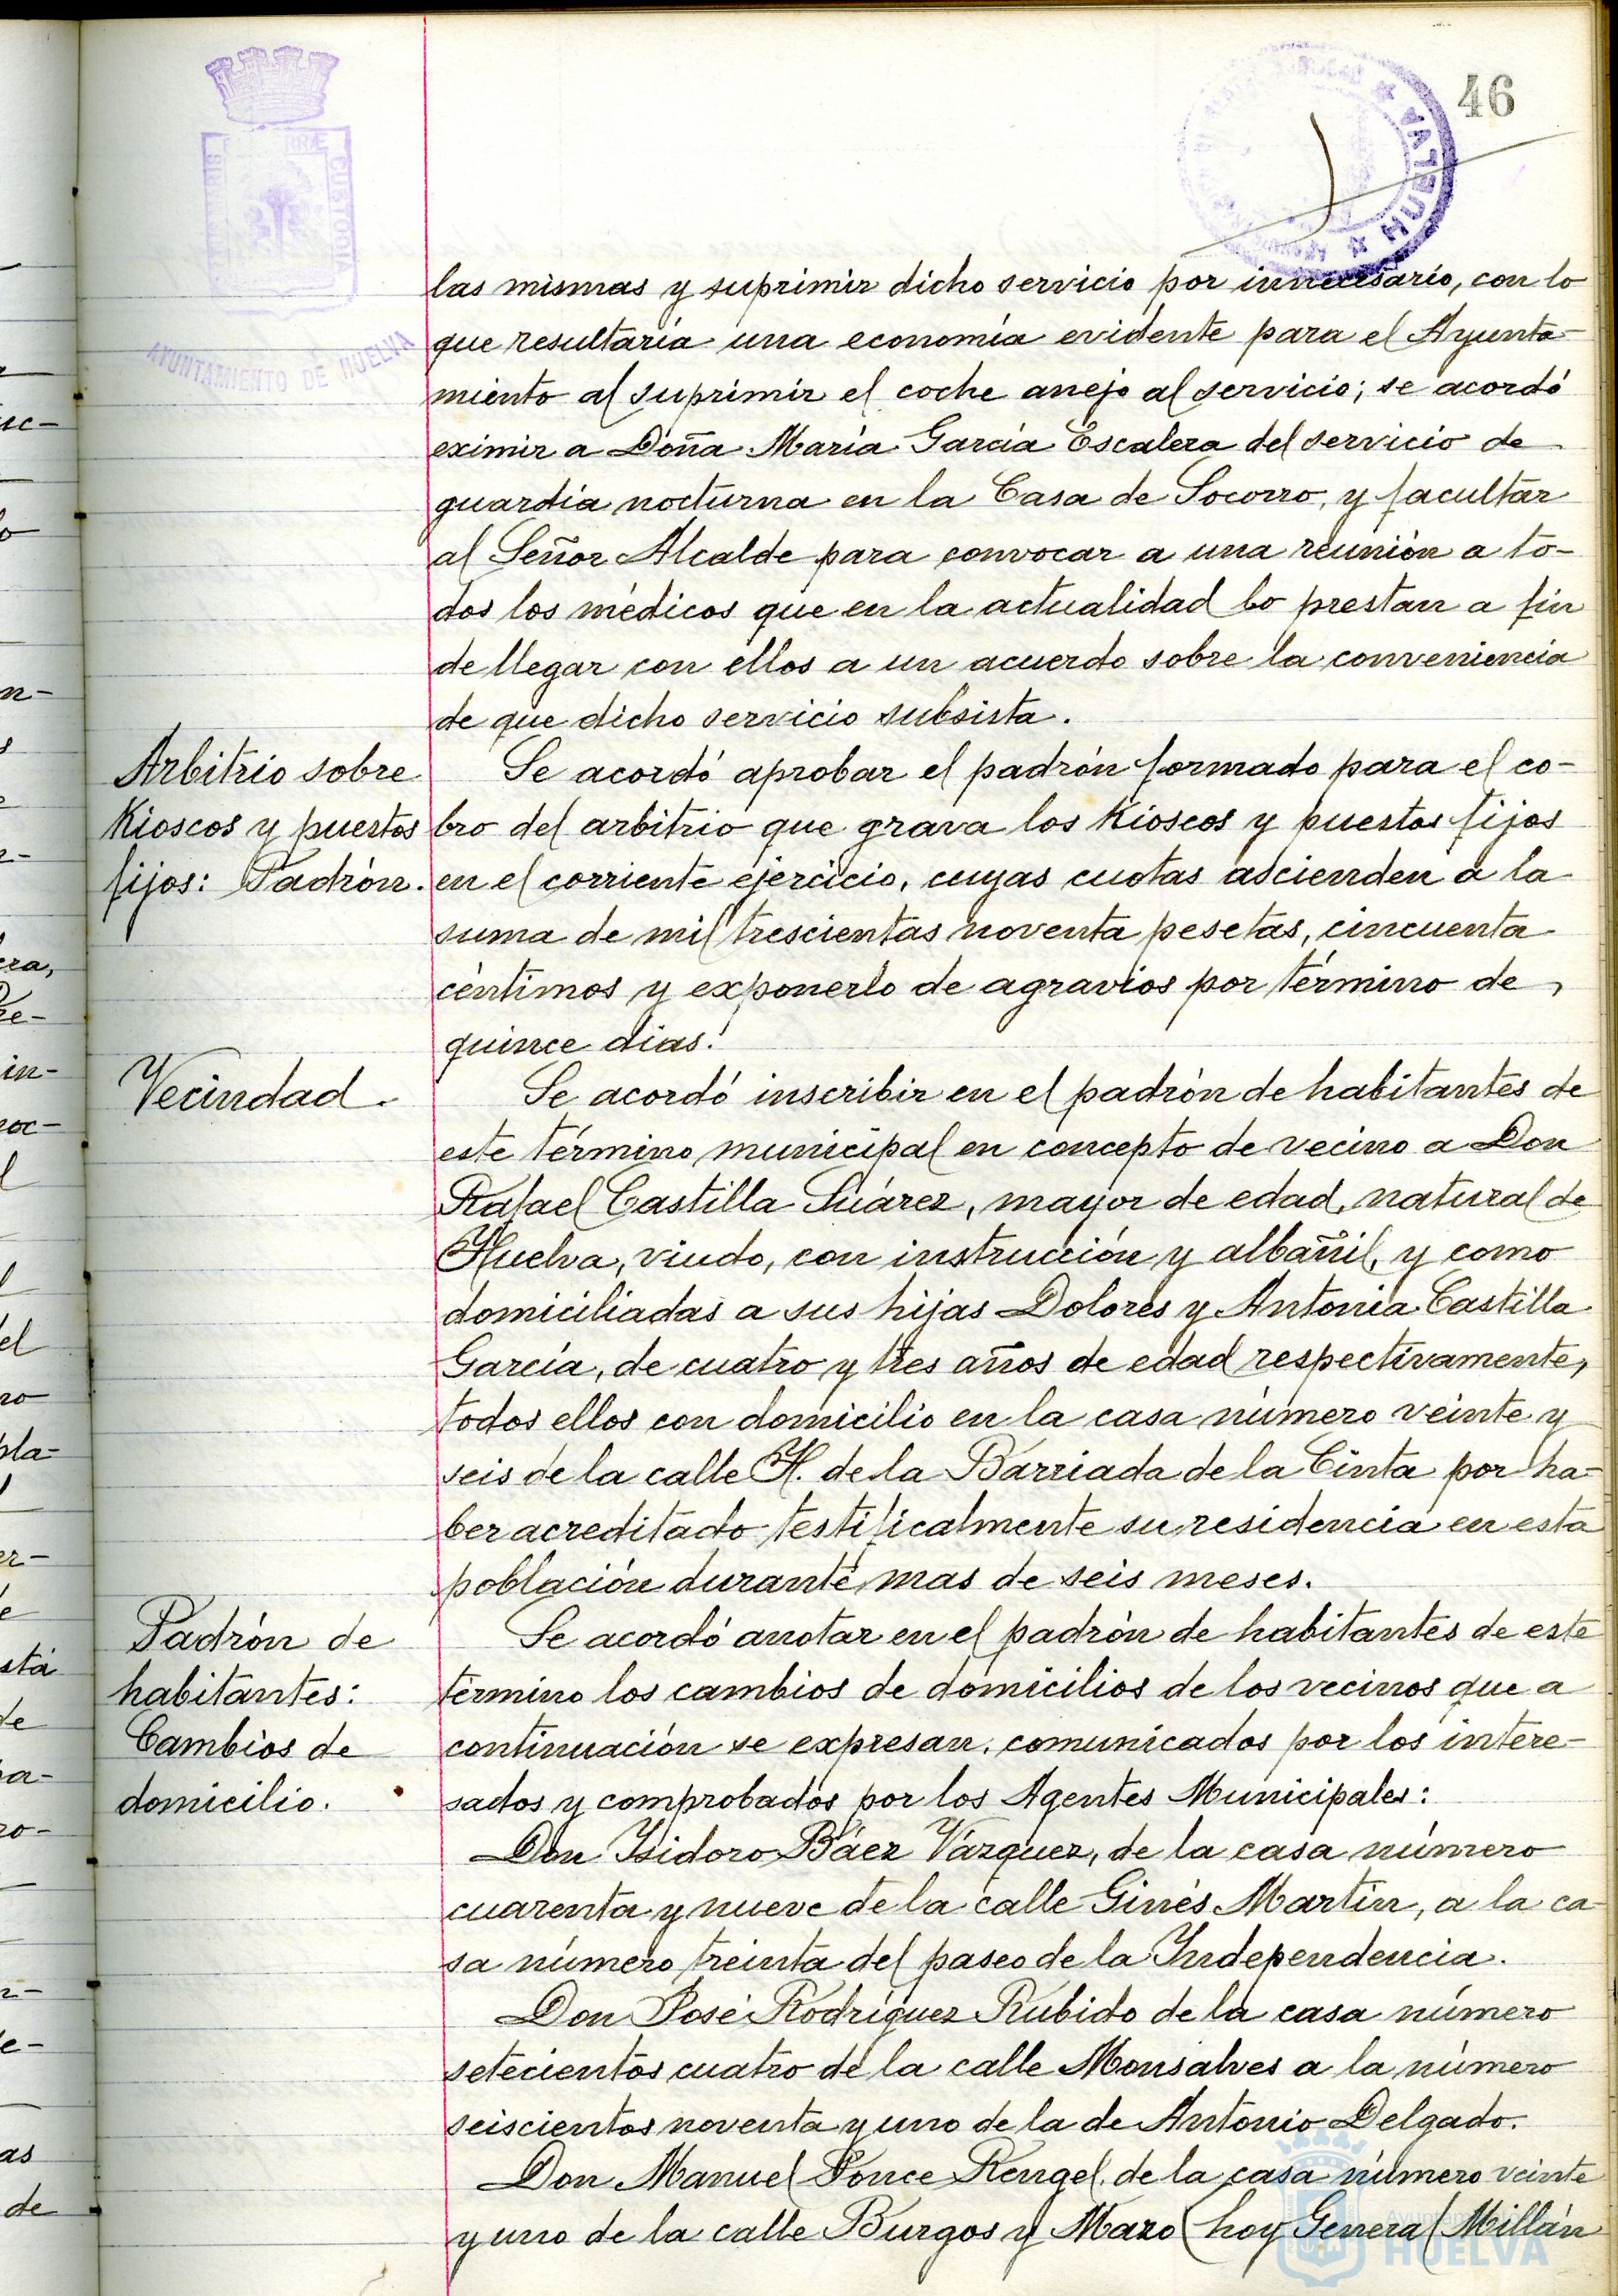 46
HUELVA
CUSTODIA
AYUNTAMIENTO DE HUELVA
las mismas y suprimir dicho servicio por innecesario, con lo
que resultaría una economía evidente para el Ayunta-
miento al suprimir el coche anejo al servicio; se acordó
eximir a Doña María García Escalera del servicio de
guardia nocturna en la Casa de Socorro, y facultar
al Señor Alcalde para convocar a una reunión a to-
dos los médicos que en la actualidad lo prestan a fin
de llegar con ellos a un acuerdo sobre la conveniencia
de que dicho servicio subsista.
Arbitrio sobre
Kioscos y puestos
fijos: Padrón.
Se acordó aprobar el padrón formado para el co-
bro del arbitrio que grava los Kioscos y puestos fijos
en el corriente ejercicio, cuyas cuotas ascienden a la
suma de mil trescientas noventa pesetas, cincuenta
céntimos y exponerlo de agravios por término de
quince dias.
Vecindad.
Se acordó inscribir en el padrón de habitantes de
este término municipal en concepto de vecino a Don
Rafael Castilla Suárez, mayor de edad, natural de
Huelva, viudo, con instrucción y albañil, y como
domiciliadas a sus hijas Dolores y Antonia Castilla
García, de cuatro y tres años de edad respectivamente,
todos ellos con domicilio en la casa número veinte y
seis de la calle H. de la Barriada de la Cinta por ha-
ber acreditado testificalmente su residencia en esta
población durante mas de seis meses.
Padrón de
habitantes:
Cambios de
domicilio.
Se acordó anotar en el padrón de habitantes de este
término los cambios de domicilios de los vecinos que a
continuación se expresan, comunicados por los intere-
sados y comprobados por los Agentes Municipales:
Don Isidoro Báez Vázquez, de la casa número
cuarenta y nueve de la calle Ginés Martín, a la ca-
sa número treinta del paseo de la Independencia.
Don José Rodríguez Rubido de la casa número
setecientos cuatro de la calle Monsalves a la número
seiscientos noventa y uno de la de Antonio Delgado.
Don Manuel Ponce Rengel, de la casa número veinte
y uno de la calle Burgos y Mazo (hoy General Millán
Ayuntamiento
HUELVA